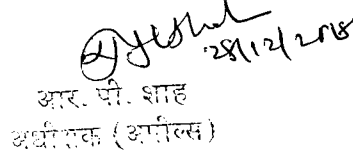 28/12/2018
आर. पी. शाह
अधीक्षक (अपील्स)